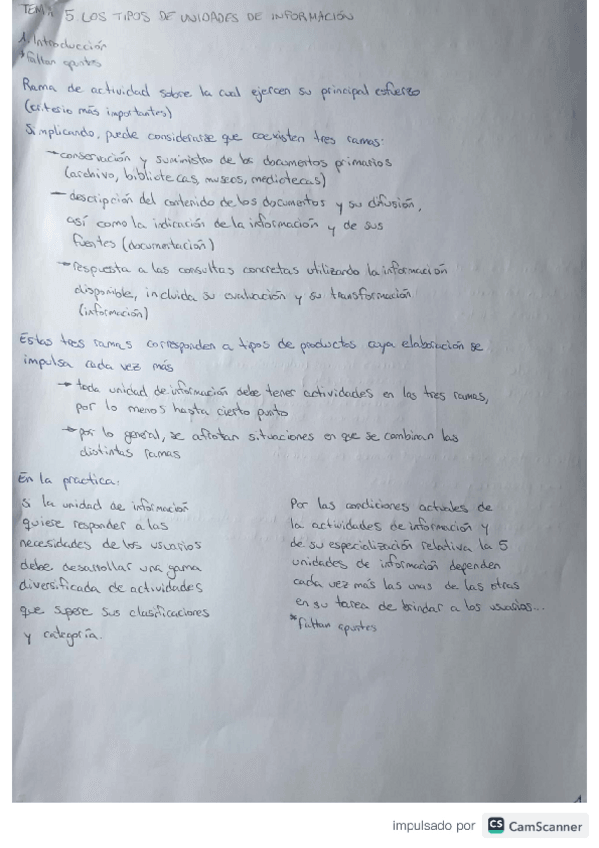 TEMA 5 LOS TIPOS DE UNIDADES DE INFORMACIÓN
1. Introducción
*faltan apuntes
Rama de actividad sobre la cual ejercen su principal esfuerzo
(criterio más importantes)
Simplicando, puede considerarse que coexisten tres ramas:
→conservación y suministro de los documentos primarios
(archivo, bibliotecas, museos, mediotecas)
→descripción del contenido de los documentos y su difusión,
así como la indicación de la información y de sus
fuentes (documentación)
→respuesta a las consultas concretas utilizando la información
disponible, incluida su evaluación y su transformación
(información)
Estas tres ramas corresponden a tipos de productos cuya elaboración se
impulsa cada vez más
→ toda unidad de información debe tener actividades en las tres ramas,
por lo menos hasta cierto punto
→por lo general, se afrotan situaciones en que se combinan las
distintas ramas
En la practica:
Si la unidad de información
quiere responder a las
necesidades de los usuarios
debe desarrollar una gama
diversificada de actividades
que supere sus clasificaciones
y categoría.
Por las condiciones actuales de
la actividades de información y
de su especialización relativa la 5
unidades de información dependen
cada vez más las unas de las otras
en su tarea de brindar a los usuarios...
*faltan apuntes
1
impulsado por CS CamScanner